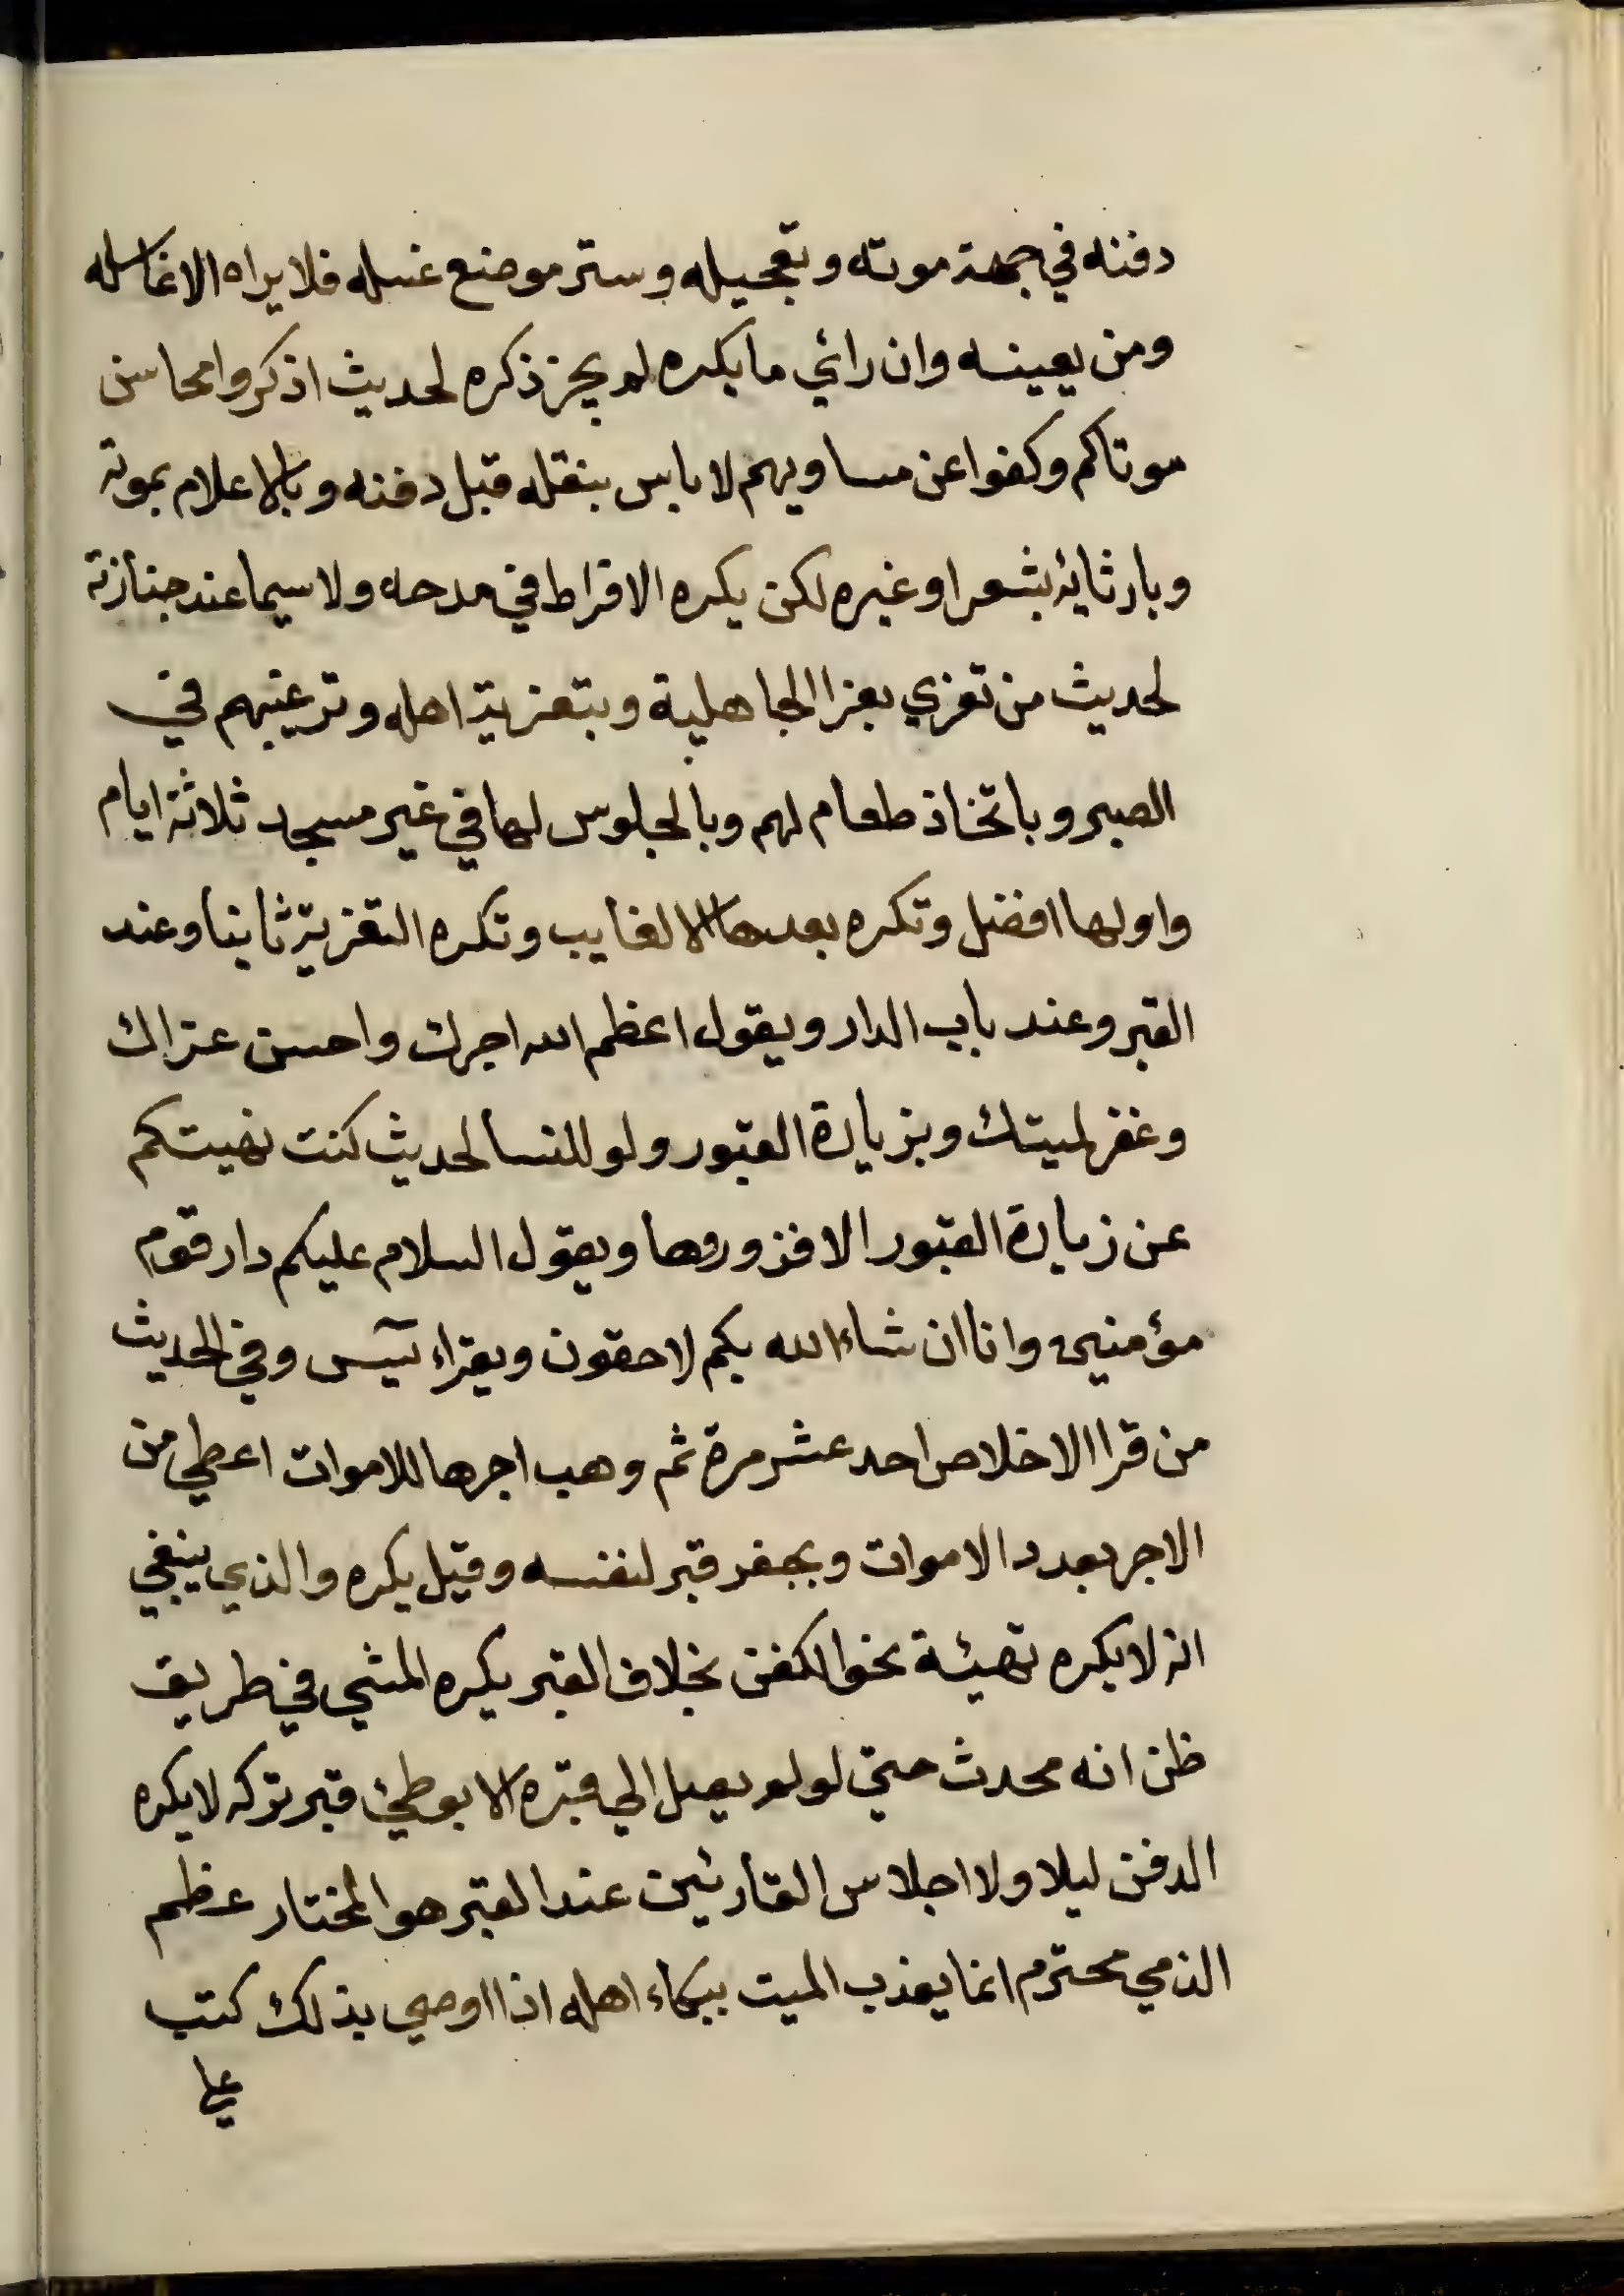 دفنه في جهة موته وتعجيله وستر موضع غسله فلا يراه الا غاسله
ومن يعينه وان رائي ما يكره لم يجز ذكره لحديث اذكروا محاسن
موتاكم وكفوا عن مساويهم لا باس بنقله قبل دفنه وبالاعلام بموته
وبارثائه بشعر او غيره لكن يكره الافراط في مدحه ولا سيما عند جنازته
لحديث من تعزي بعزا الجاهلية وبتعزية اهله وترغيبهم في
الصبر وباتخاذ طعام لهم وبالجلوس لها في غير مسجد ثلاثة ايام
واولها افضل وتكره بعدها الا لغايب وتكره التعزية ثانيا وعند
القبر وعند باب الدار ويقول اعظم الله اجرك واحسن عزاك
وغفر لميتك وبزيارة القبور ولو للنسا لحديث كنت نهيتكم
عن زيارة القبور الا فزوروها ويقول السلام عليكم دار قوم
مؤمنين وانا ان شاء الله بكم لاحقون ويقراء يٓس وفي الحديث
من قرا الاخلاص احد عشر مرة ثم وهب اجرها للاموات اعطي من
الاجر بعدد الاموات وبحفر قبر لنفسه وقيل يكره والذي ينبغي
انه لا يكره تهيئة نحو الكفن بخلاف القبر يكره المشي في طريق
ظن انه محدث حتي لو لم يصل الي قبره الا بوطئ قبر تركه لا يكره
الدفن ليلا ولا اجلاس القارئين عند القبر هو المختار عظم
الذمي محترم انما يعذب الميت ببكاء اهله اذا اوصي بذلك كتب
علي